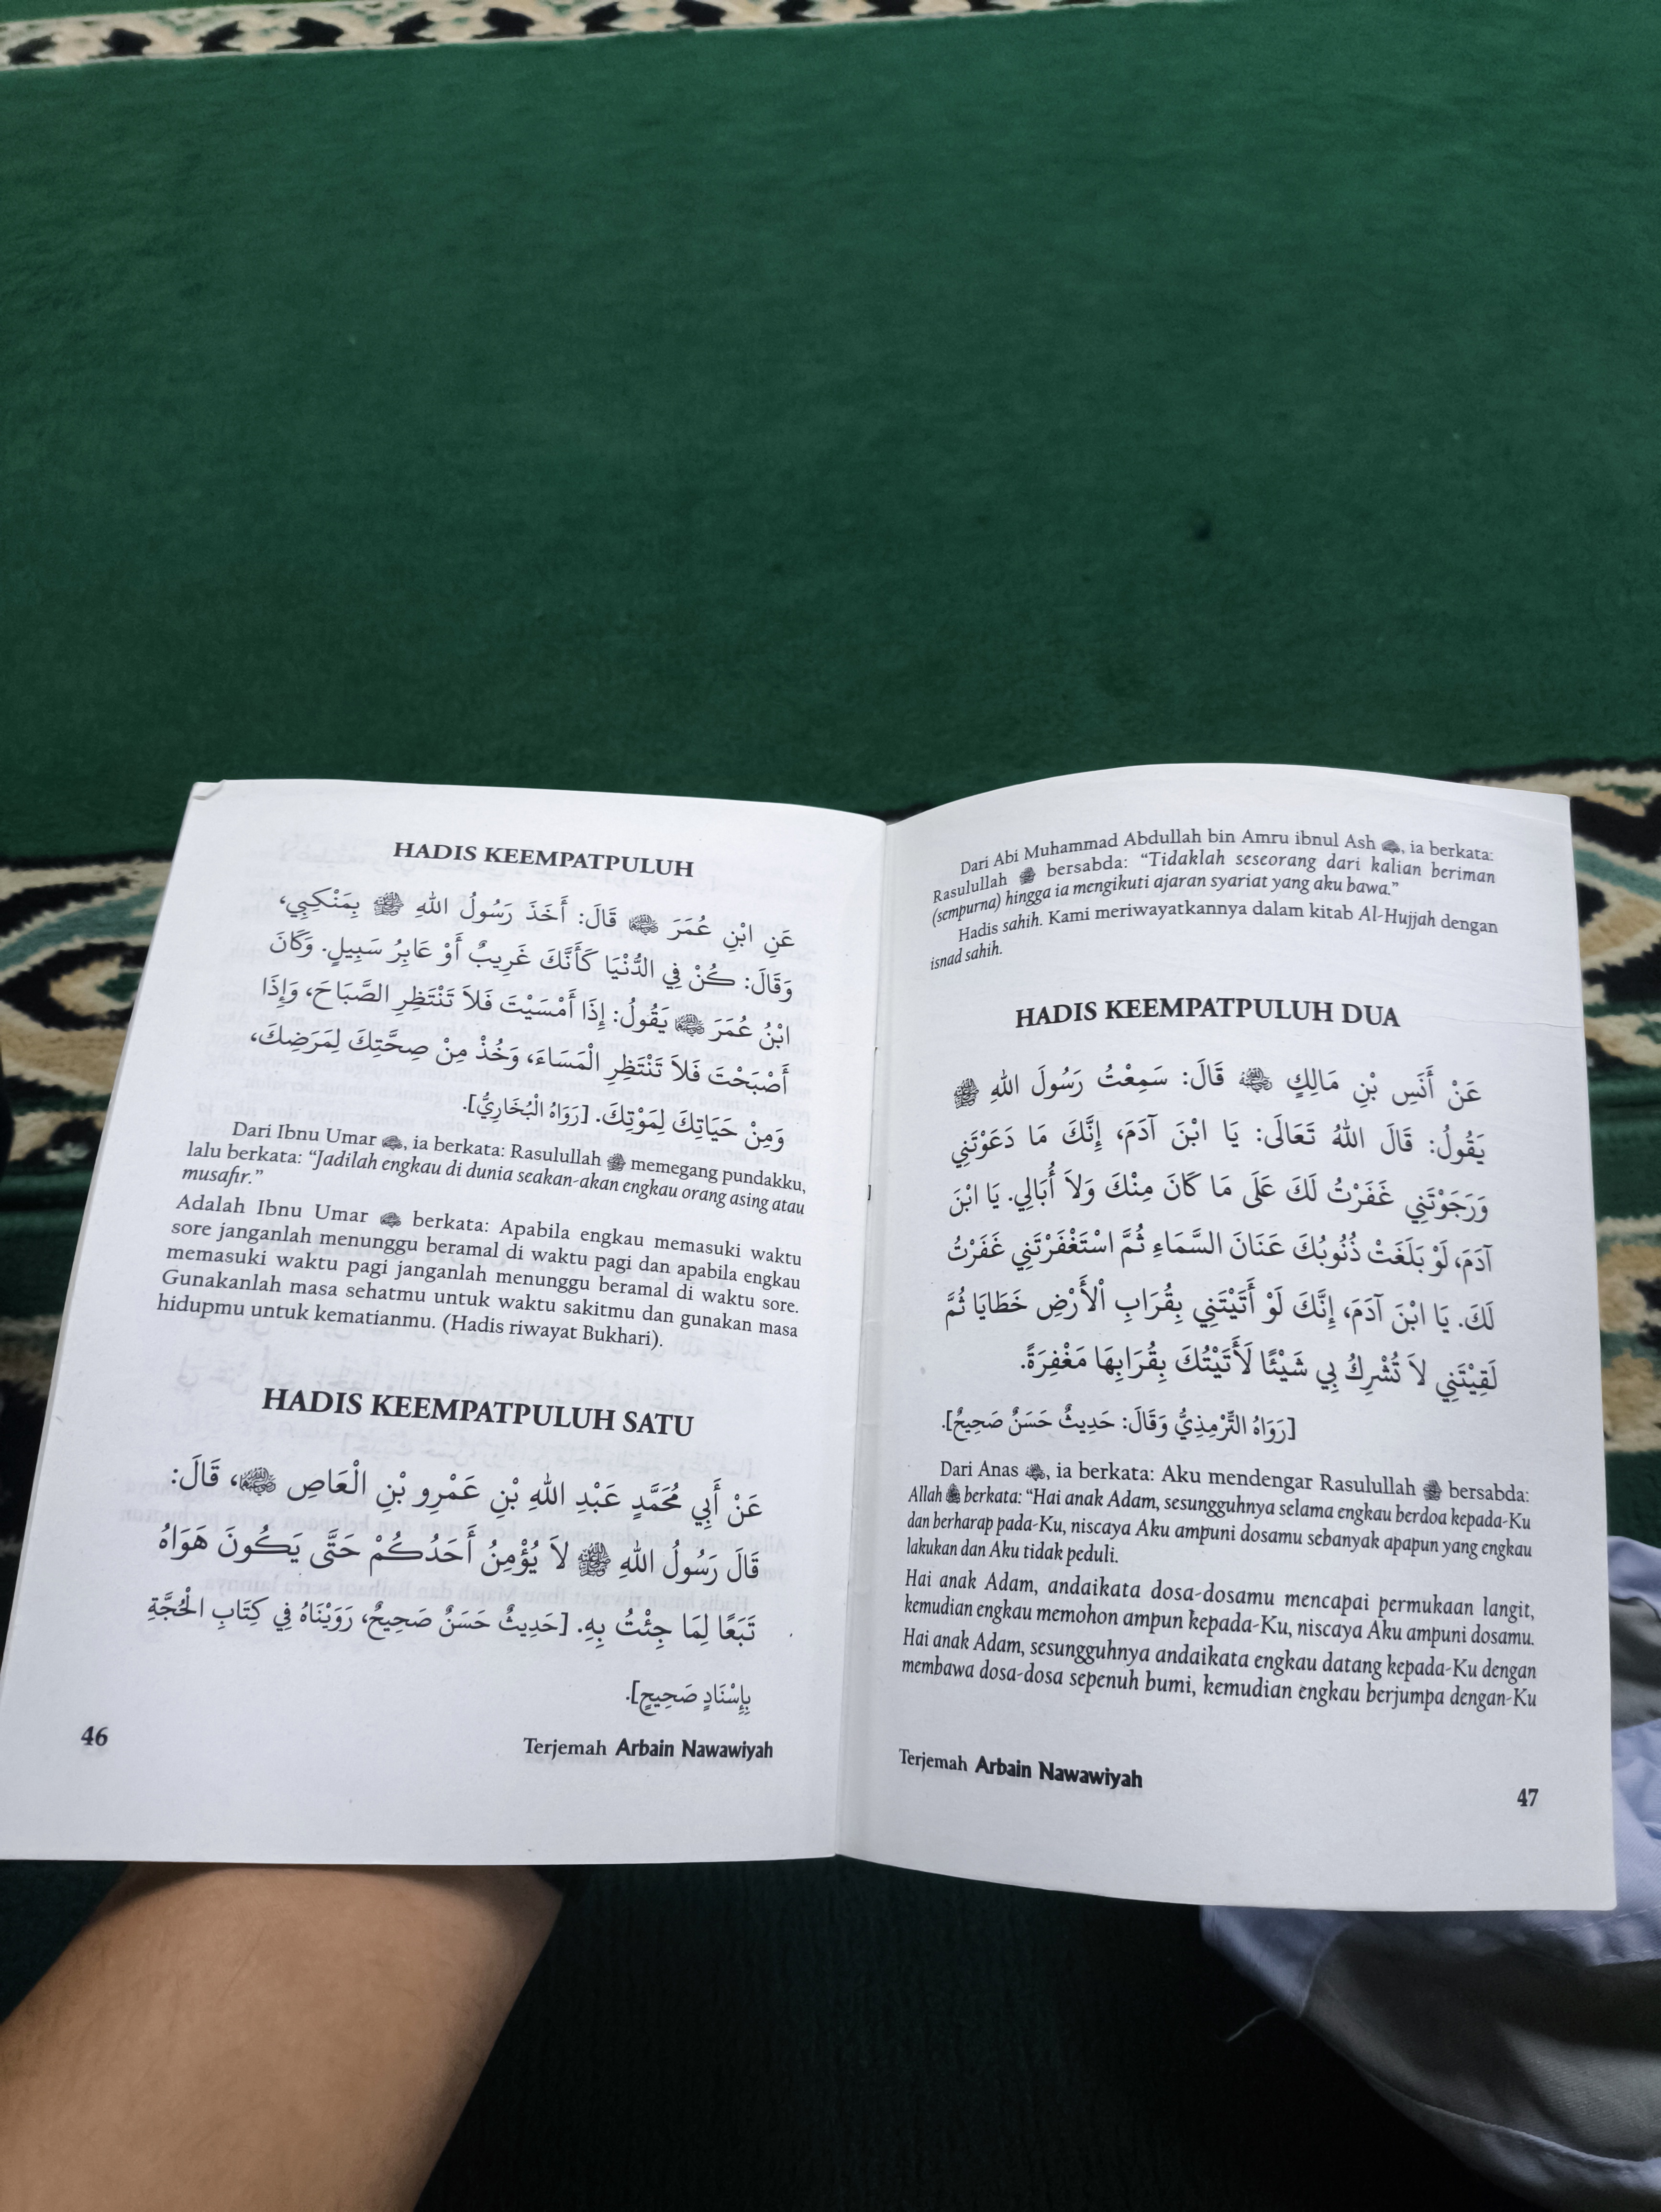 HADIS KEEMPATPULUH
عَنِ ابْنِ عُمَرَ ﵁ قَالَ: أَخَذَ رَسُولُ اللهِ ﷺ بِمَنْكِبِي،
وَقَالَ: كُنْ فِي الدُّنْيَا كَأَنَّكَ غَرِيبٌ أَوْ عَابِرُ سَبِيلٍ. وَكَانَ
ابْنُ عُمَرَ ﵁ يَقُولُ: إِذَا أَمْسَيْتَ فَلاَ تَنْتَظِرِ الصَّبَاحَ، وَإِذَا
أَصْبَحْتَ فَلاَ تَنْتَظِرِ الْمَسَاءَ، وَخُذْ مِنْ صِحَّتِكَ لِمَرَضِكَ،
وَمِنْ حَيَاتِكَ لِمَوْتِكَ. [رَوَاهُ الْبُخَارِيُّ].
Dari Ibnu Umar ﵁, ia berkata: Rasulullah ﷺ memegang pundakku,
lalu berkata: “Jadilah engkau di dunia seakan-akan engkau orang asing atau
musafir.”
Adalah Ibnu Umar ﵁ berkata: Apabila engkau memasuki waktu
sore janganlah menunggu beramal di waktu pagi dan apabila engkau
memasuki waktu pagi janganlah menunggu beramal di waktu sore.
Gunakanlah masa sehatmu untuk waktu sakitmu dan gunakan masa
hidupmu untuk kematianmu. (Hadis riwayat Bukhari).
HADIS KEEMPATPULUH SATU
عَنْ أَبِي مُحَمَّدٍ عَبْدِ اللهِ بْنِ عَمْرِو بْنِ الْعَاصِ ﵁، قَالَ:
قَالَ رَسُولُ اللهِ ﷺ لاَ يُؤْمِنُ أَحَدُكُمْ حَتَّى يَكُونَ هَوَاهُ
تَبَعًا لِمَا جِئْتُ بِهِ. [حَدِيثٌ حَسَنٌ صَحِيحٌ، رَوَيْنَاهُ فِي كِتَابِ الْحُجَّةِ
بِإِسْنَادٍ صَحِيحٍ].
46
Terjemah Arbain Nawawiyah
Dari Abi Muhammad Abdullah bin Amru ibnul Ash ﵁, ia berkata:
Rasulullah ﷺ bersabda: “Tidaklah seseorang dari kalian beriman
(sempurna) hingga ia mengikuti ajaran syariat yang aku bawa.”
Hadis sahih. Kami meriwayatkannya dalam kitab Al-Hujjah dengan
isnad sahih.
HADIS KEEMPATPULUH DUA
عَنْ أَنَسِ بْنِ مَالِكٍ ﵁ قَالَ: سَمِعْتُ رَسُولَ اللهِ ﷺ
يَقُولُ: قَالَ اللهُ تَعَالَى: يَا ابْنَ آدَمَ، إِنَّكَ مَا دَعَوْتَنِي
وَرَجَوْتَنِي غَفَرْتُ لَكَ عَلَى مَا كَانَ مِنْكَ وَلاَ أُبَالِي. يَا ابْنَ
آدَمَ، لَوْ بَلَغَتْ ذُنُوبُكَ عَنَانَ السَّمَاءِ ثُمَّ اسْتَغْفَرْتَنِي غَفَرْتُ
لَكَ. يَا ابْنَ آدَمَ، إِنَّكَ لَوْ أَتَيْتَنِي بِقُرَابِ الْأَرْضِ خَطَايَا ثُمَّ
لَقِيْتَنِي لاَ تُشْرِكُ بِي شَيْئًا لَأَتَيْتُكَ بِقُرَابِهَا مَغْفِرَةً.
[رَوَاهُ التِّرْمِذِيُّ وَقَالَ: حَدِيثٌ حَسَنٌ صَحِيحٌ].
Dari Anas ﵁, ia berkata: Aku mendengar Rasulullah ﷺ bersabda:
Allah ﷻ berkata: “Hai anak Adam, sesungguhnya selama engkau berdoa kepada-Ku
dan berharap pada-Ku, niscaya Aku ampuni dosamu sebanyak apapun yang engkau
lakukan dan Aku tidak peduli.
Hai anak Adam, andaikata dosa-dosamu mencapai permukaan langit,
kemudian engkau memohon ampun kepada-Ku, niscaya Aku ampuni dosamu.
Hai anak Adam, sesungguhnya andaikata engkau datang kepada-Ku dengan
membawa dosa-dosa sepenuh bumi, kemudian engkau berjumpa dengan-Ku
Terjemah Arbain Nawawiyah
47